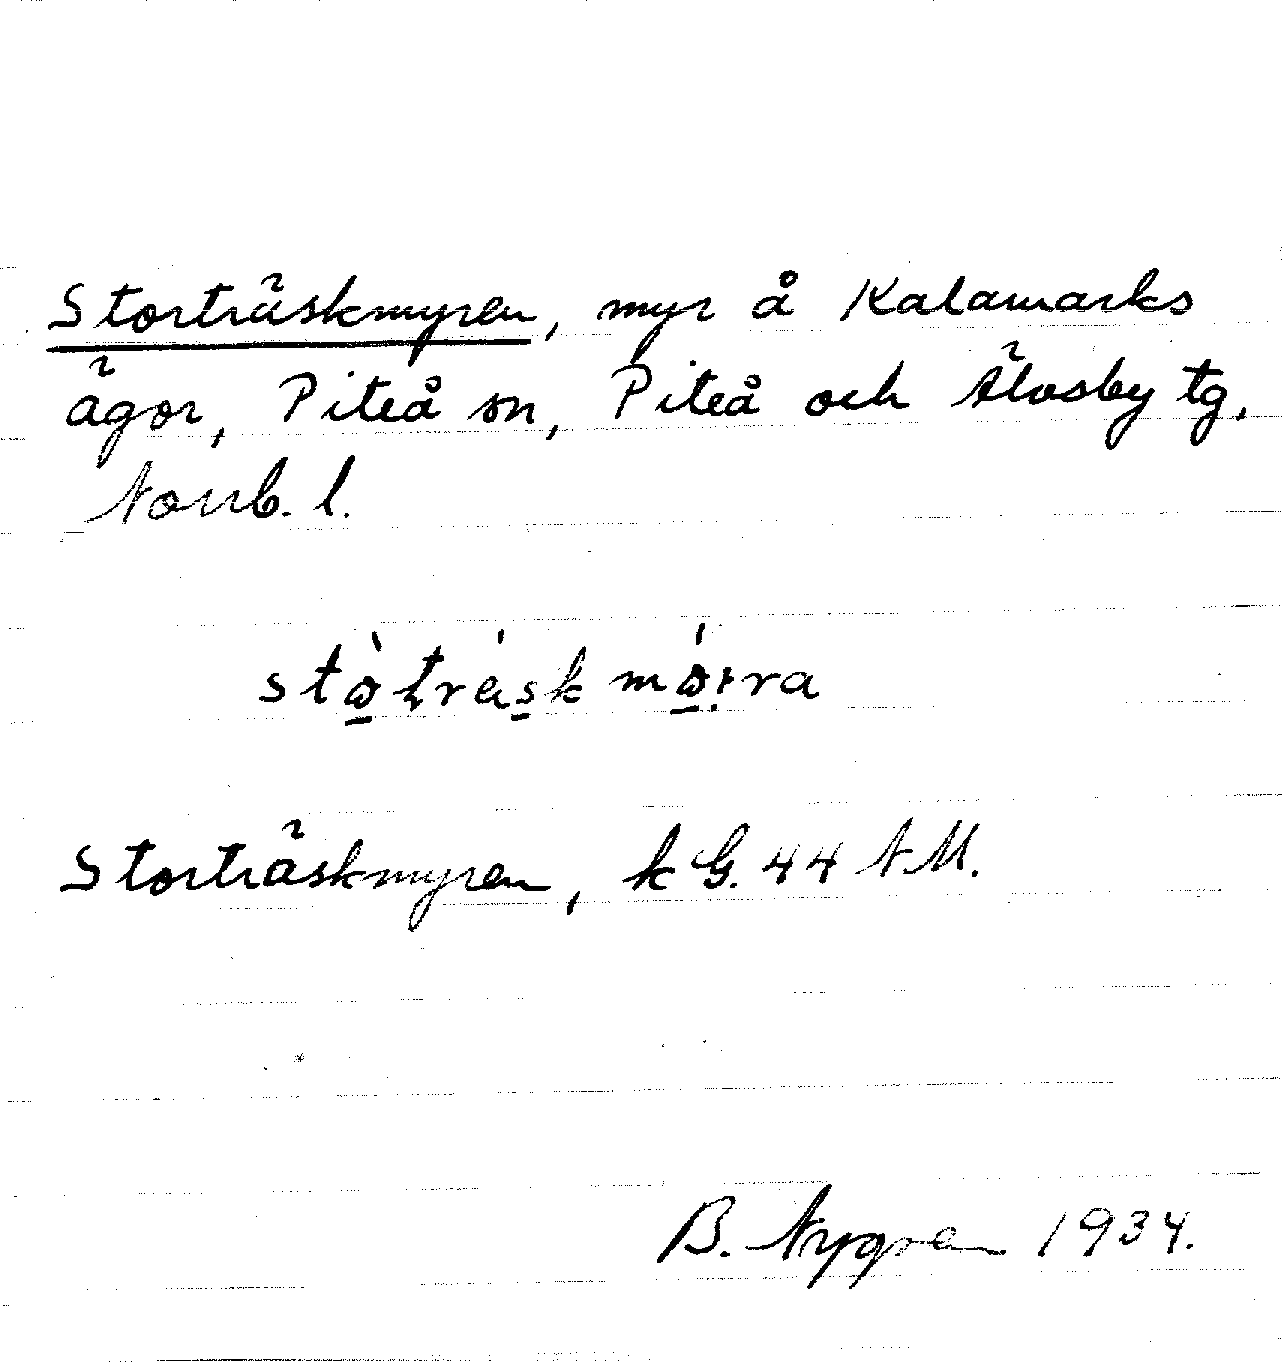 Storträskmyren, myr å Kalamarks
ägor, Piteå sn, Piteå och Älvsby tg,
Norrb. l.
Storträskmyren, k G. 44 N.M.
B. Nygren 1934.